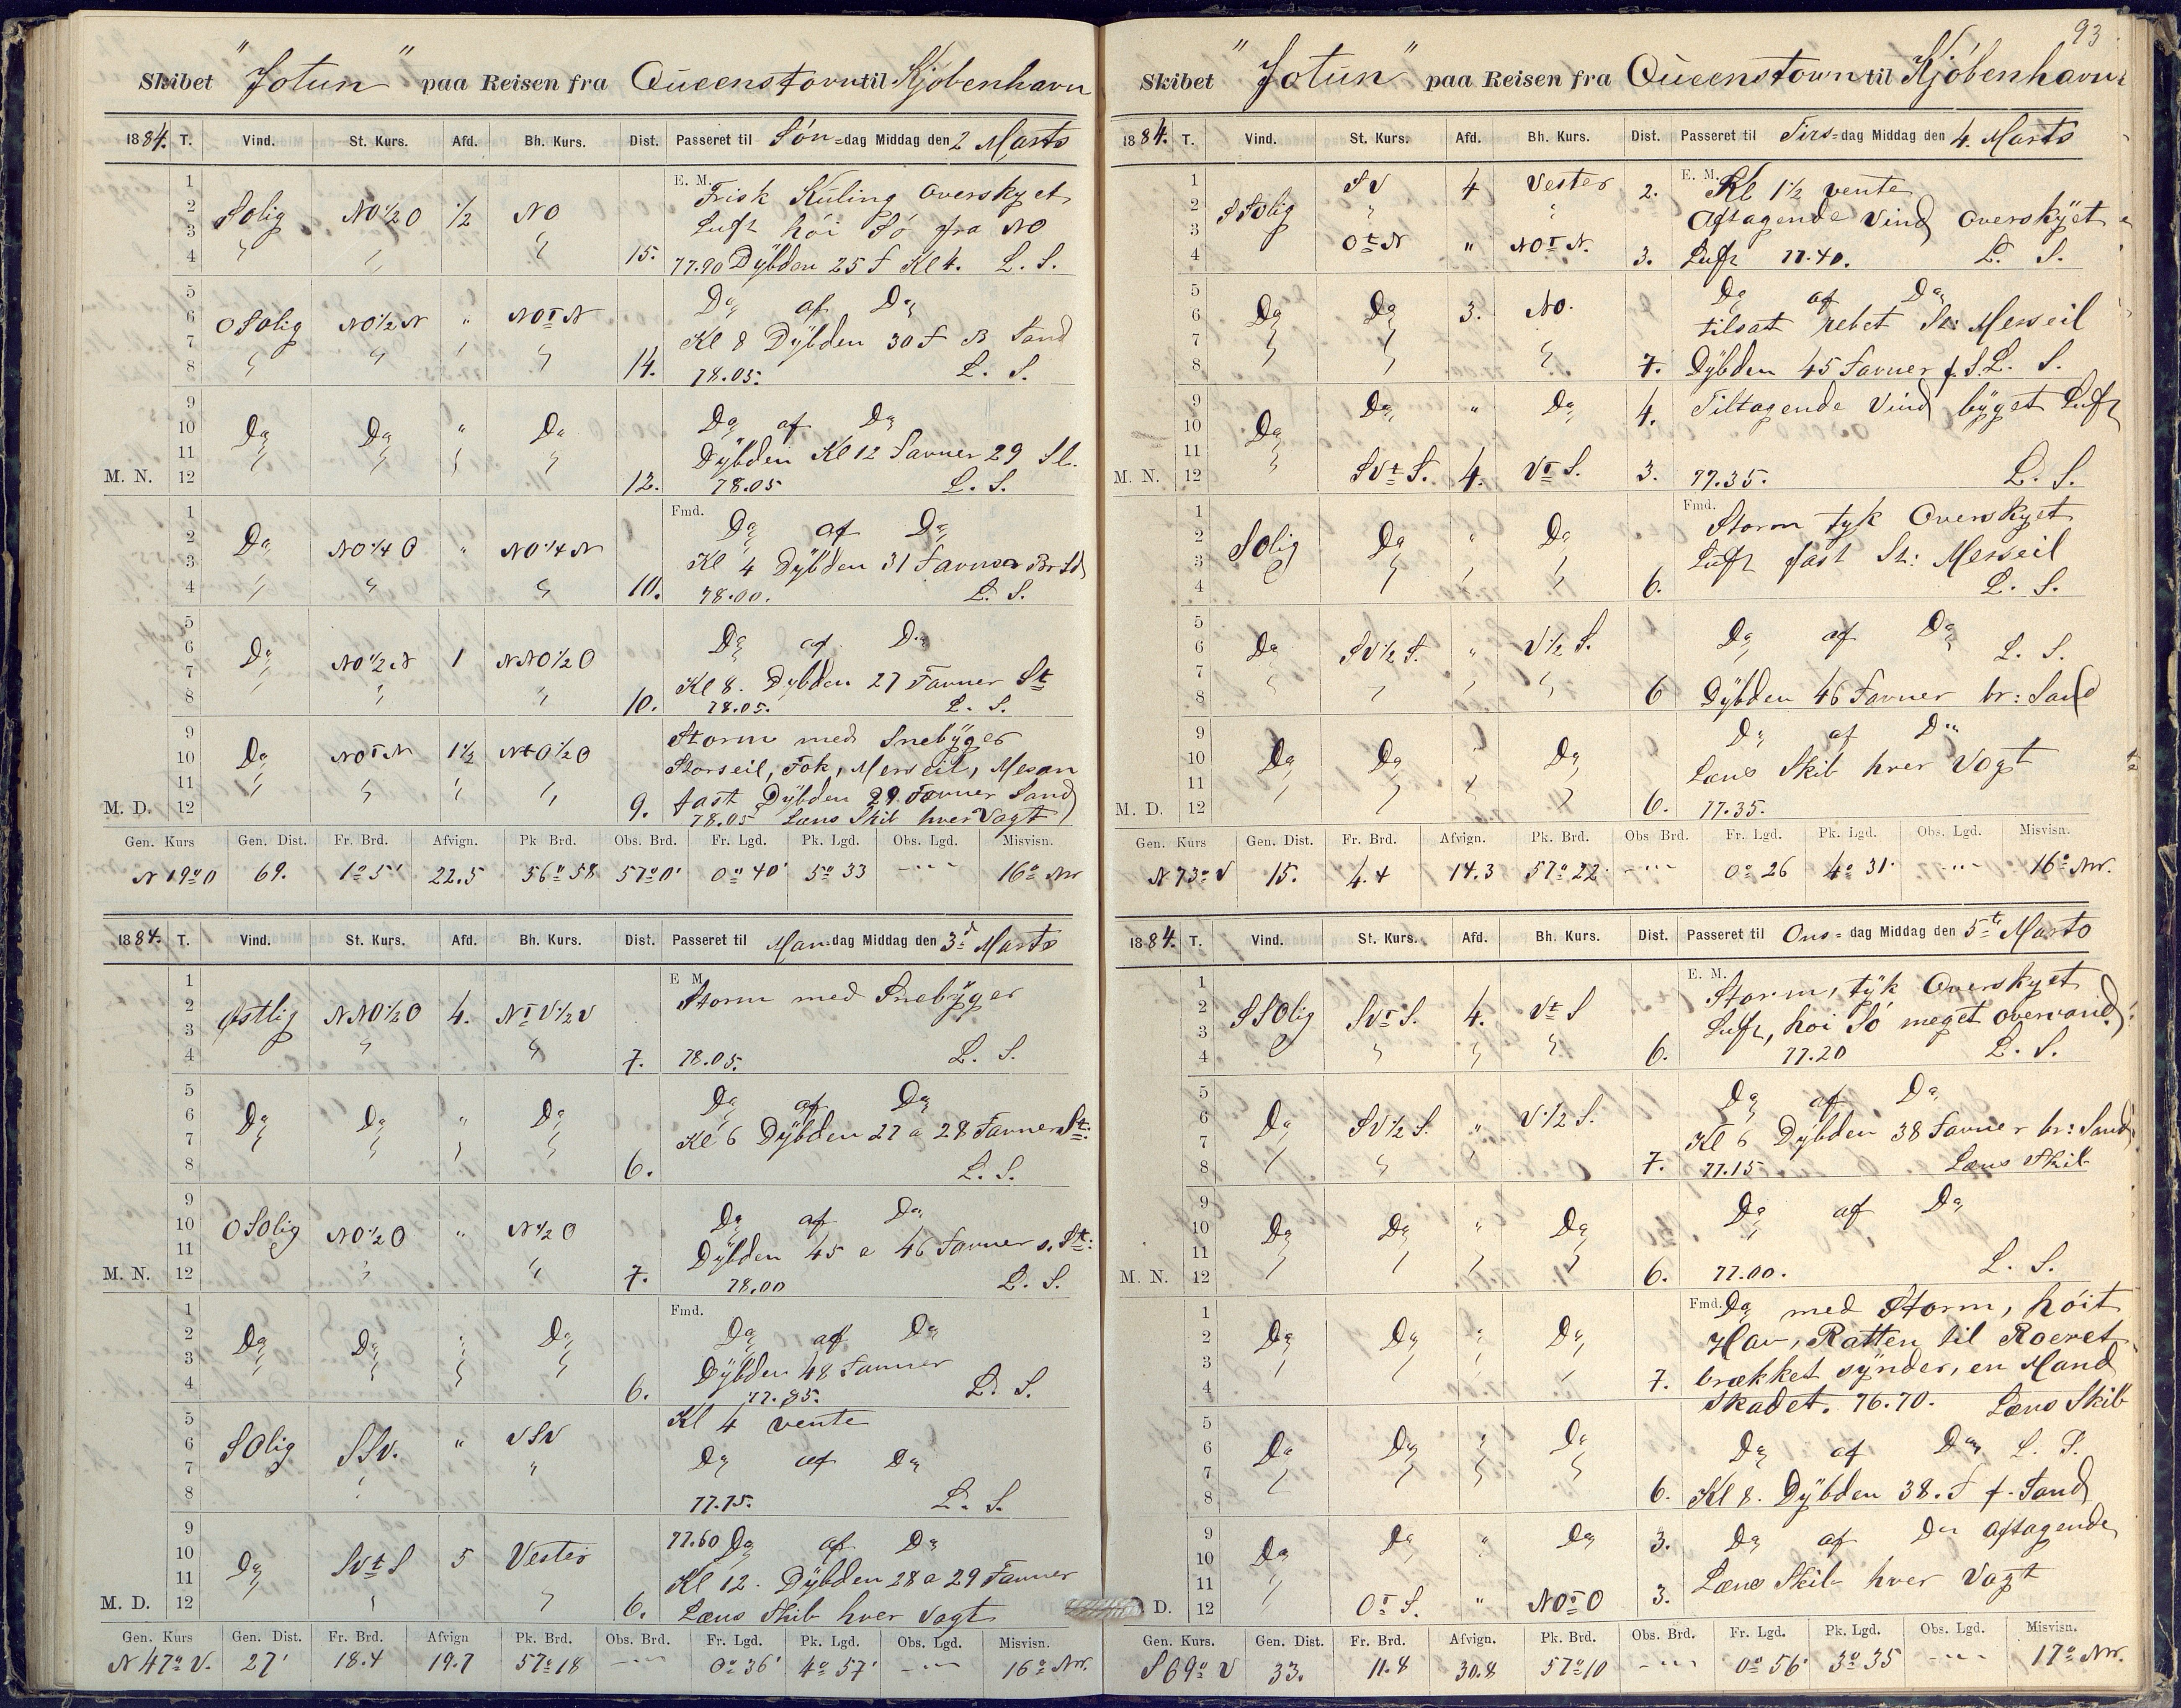 Skibet "Jotun" paa Reisen fra Queenstown til Kjöbenhavn
1884. T. Vind. St. Kurs. Afd. Bh. Kurs. Dist. Passeret til Sön-dag Middag den 2 Marts
1 E. M. Frisk Kuling Overskyet
2 SOlig NO 1/2 O 1/2 NO
3 Luft höi Sö fra NO
4 " " " 15. 77.90 Dÿbden 25 F Kl 4. L. S.
5 Do af Do
6 OSOlig NO 1/2 N " NOtN
7 Kl 8 Dÿbden 30 F B Sand
8 " " " " 14. 78.05. L. S.
9 Do af Do
10 Do Do " Do
11 Dÿbden Kl 12 Favner 29 Sl.
M. N. 12 12. 78.05 L. S.
1 Fmd. Do af Do
2 Do NO 1/4 O " NO 1/4 N
3 Kl 4 Dÿbden 31 Favner Br Sd
4 " " " 10. 78.00. L. S.
5 Do af Do
6 Do NO 1/2 N 1 NNO 1/2 O
7 Kl 8. Dybden 27 Favner St
8 " " 10. 78.05. L. S.
9 Storm med Snebÿger
10 Do NOtN 1 1/2 NtO 1/2 O Storseil, Fok, Merseil, Mesan
11 " " " " fast Dÿbden 29 Favner Sand
M. D. 12 9. 78.05 Læns Skib hver Vagt
Gen. Kurs Gen. Dist. Fr. Brd. Afvign. Pk Brd. Obs. Brd. Fr. Lgd. Pk. Lgd. Obs. Lgd. Misvisn.
N 19° O 69. 1° 5' 22.5 56° 58 57° 0' 0° 40' 5° 33 -- 16° Nv.
1884. T. Vind. St. Kurs. Afd. Bh. Kurs. Dist. Passeret til Man-dag Middag den 3d Marts
1 E M. Storm med Snebÿger
2 Østlig NNO 1/2 O 4. NtV 1/2 V
3
4 " " 7. 78.05. L. S.
5 Do af Do
6 Do Do " Do
7 Kl 6 Dÿbden 27 a 28 Favner St:
8 6. L. S.
9 Do af Do
10 OSOlig NO 1/2 O " N 1/2 O
11 Dÿbden 45 a 46 Favner s. St:
M. N. 12 7. 78.00 L. S.
1 Fmd. Do af Do
2 Do Do " Do
3 Dÿbden 48 Favner
4 6. 77.85. L. S.
5 Kl 4 vente
6 SOlig SSV. " VSV
7 Do af Do
8 77.75. L. S.
9 77.60 Do af Do
10 Do SVtS 5 Vester
11 Kl 12. Dÿbden 28 a 29 Favner
M. D. 12 6. Læns Skib hver Vagt
Gen. Kurs Gen. Dist. Fr. Brd. Afvign Pk. Brd. Obs. Brd. Fr. Lgd. Pk. Lgd. Obs. Lgd. Misvisn.
N 47° V. 27' 18.4 19.7 57° 18 -- 0° 36' 4° 57' -- 16° Nv.
93
Skibet "Jotun" paa Reisen fra Queenstown til Kjöbenhavn
1884. T. Vind. St. Kurs. Afd. Bh. Kurs. Dist. Passeret til Tirs-dag Middag den 4. Marts
1 SV 4 Vester 2. E. M. Kl 1 1/2 vente
2 SSOlig " "
3 Aftagende Vind Overskÿet
4 OtN " NOtN. 3. Luft 77.40. L. S.
5 Do af Do
6 Do Do 3. NO.
7 tilsat rebet St: Merseil
8 7. Dÿbden 45 Favner f. S. L. S.
9 Do " Do 4. Tiltagende Vind bÿget Luft
10 Do
11
M. N. 12 SVtS. 4. VtS. 3. 77.35. L. S.
1 Fmd. Storm tyk Overskyet
2 SOlig Do " Do
3 Luft fast St: Merseil
4 6. L. S.
5 Do af Do
6 Do SV 1/2 S. " V 1/2 S. L. S.
7
8 6 Dÿbden 46 Favner br: Sand
9 Do af Do
10 Do Do Do
11 Læns Skib hver Vagt
M. D. 12 6. 77.35.
Gen. Kurs Gen. Dist. Fr. Brd. Afvign. Pk. Brd. Obs Brd. Fr. Lgd. Pk. Lgd. Obs. Lgd. Misvisn.
N 73° V 15. 4.4 14.3 57° 22' -- 0° 26 4° 31' -- 16° Nv.
1884. T. Vind. St. Kurs. Afd. Bh. Kurs. Dist. Passeret til Ons-dag Middag den 5te Marts
1 E. M. Storm, tÿk Overskyet
2 SSOlig SVtS. 4. VtS
3 Luft, höi Sö meget overvand
4 " " " 6. 77.20 L. S.
5 Do af Do
6 Do SV 1/2 S. " V 1/2 S.
7 Kl 6 Dÿbden 38 Favner br: Sand
8 7. 77.15 Læns Skib
9 Do af Do
10 Do Do " Do
11
M. N. 12 6. 77.00. L. S.
1 Fmd. Do med Storm, höit
2 Do Do " Do Hav, Ratten til Roeret
3 7. brækket sÿnder, en Mand
4 skadet. 76.70. Læns Skib
5
6 Do Do " Do Do af Do L. S.
7
8 6. Kl 8. Dÿbden 38. F f. Sand
9 Do " Do 3. Do af Do aftagende
10 Do
11 Læns Skib hver Vagt
D. 12 OtS. " NOtO 3.
Gen. Kurs. Gen. Dist. Fr. Brd. Afvign. Pk. Brd. Obs. Brd. Fr. Lgd. Pk. Lgd. Obs. Lgd. Misvisn.
S 69° V 33. 11.8 30.8 57° 10 -- 0° 56' 3° 35 -- 17° Nv.